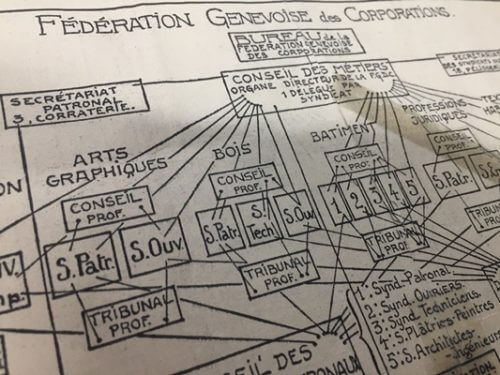 FÉDÉRATION GENEVOISE des CORPORATIONS.
BUREAU de la
FÉDÉRATION GENEVOISE
DES CORPORATIONS
SECRÉTARIAT
PATRONAL
3, CORRATERIE.
CONSEIL DES MÉTIERS
ORGANE DIRECTEUR DE LA F.G.D.C.
1 DÉLÉGUÉ PAR
SYNDICAT
SECRÉTARIAT
ARTS
GRAPHIQUES
CONSEIL
PROF.
S.Patr.
S.Ouv.
TRIBUNAL
PROF.
BOIS
CONSEIL
PROF.
S.Patr.
S.
Tech.
S.Ouv.
TRIBUNAL
PROF.
BATIMENT
CONSEIL
PROF.
1 2 3 4 5
TRIBUNAL
PROF.
PROFESSIONS
JURIDIQUES
CONSEIL
PROF.
S.Patr.
TRIBUNAL
PROF.
1: Synd. Patronal
2: Synd. Ouvriers
3: Synd. Techniciens
4: S. Plâtriers-Peintres
5: S. Architectes-
Ingénieurs
CONSEIL DES